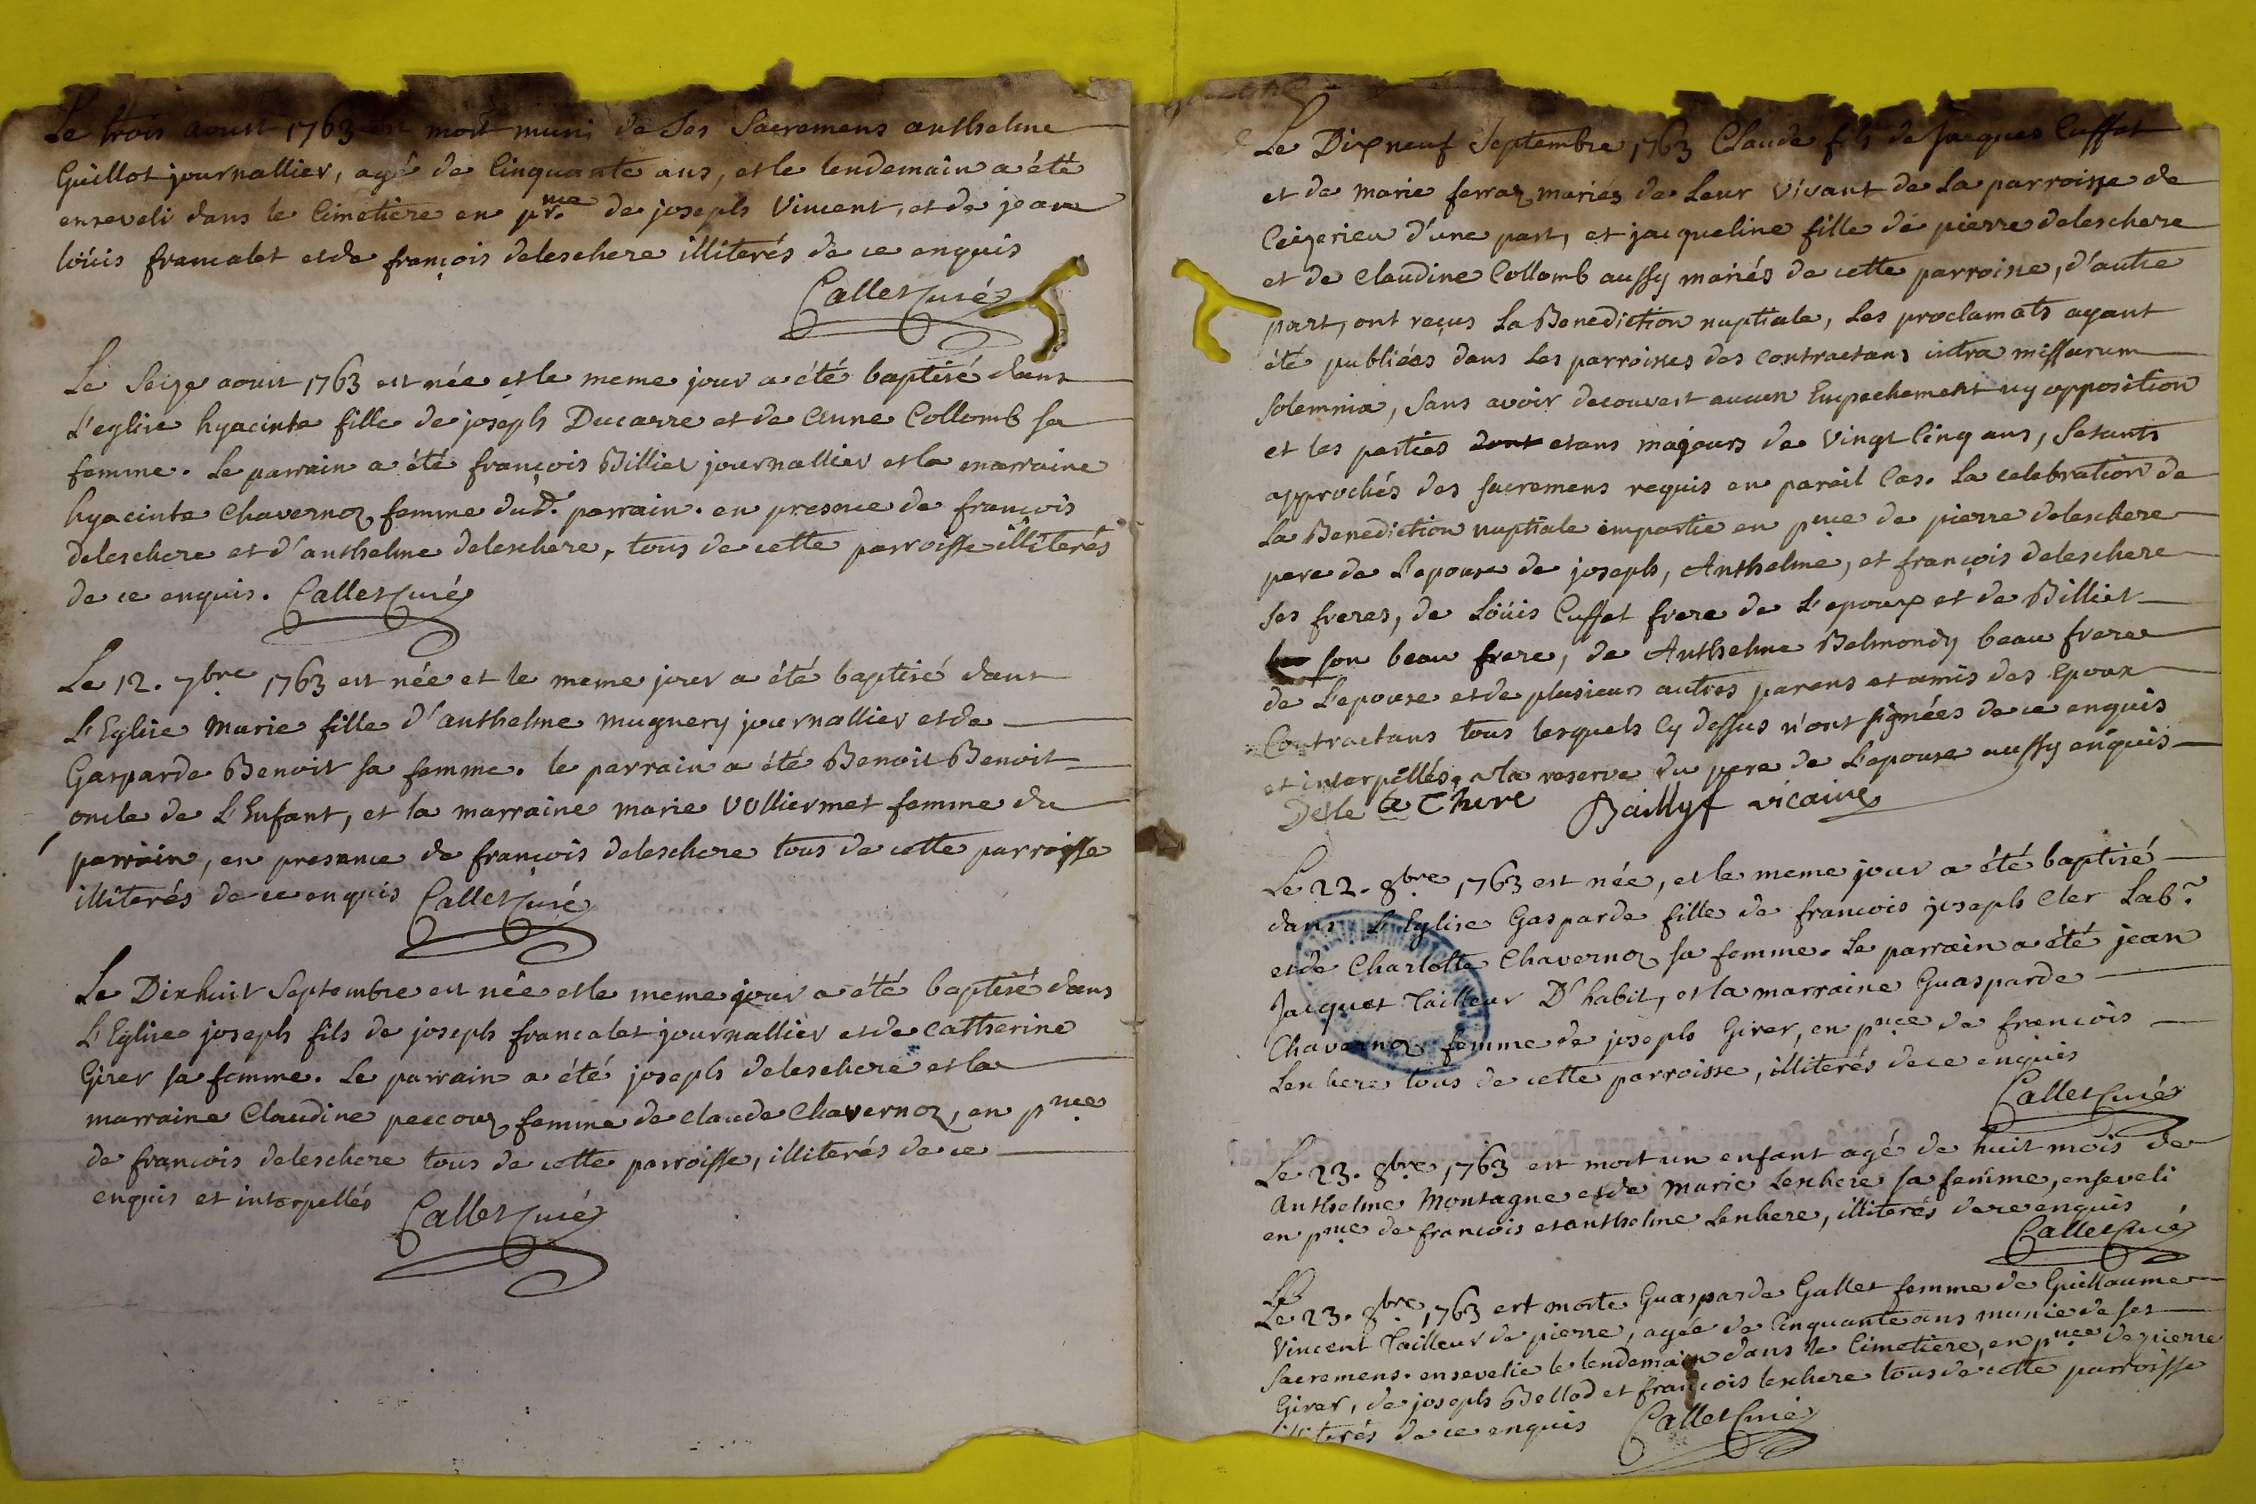 Le trois aoust 1763 est mort muni de ses Sacremens anthelme
Guillot journallier, agé de Cinquante ans, et le lendemain a été
enseveli dans le Cimetiere en prnce de joseph Vincent, et de jean
loüis francalet et de françois deleschere illiterés de ce enquis
Callet Curé
Le Seize aoust 1763 est née et le meme jour a été baptisé dans
L'eglise hyacinte fille de joseph Ducarre et de Anne Collomb sa
femme. Le parrain a été françois Billiet journallier et la marraine
hyacinte Chavernoz femme dud. parrain. en presnce de françois
deleschere et d'anthelme deleschere, tous de cette parroisse illiterés
de ce enquis. Callet Curé
Le 12. 7bre 1763 est née et le meme jour a été baptisé dans
L'Eglise Marie fille d'anthelme mugnery journallier et de
Gasparde Benoit sa femme. le parrain a été Benoit Benoit
oncle de L'Enfant, et la marraine marie Volliermet femme du
parrain, en presence de françois deleschere tous de cette parroisse
illiterés de ce enquis Callet Curé
Le Dixhuit Septembre est née et le meme jour a été baptisé dans
L'Eglise joseph fils de joseph francalet journallier et de Catherine
Girer sa femme. Le parrain a été joseph deleschere et la
marraine Claudine pescouz femme de Claude Chavernoz, en pnce
de francois deleschere tous de cette parroisse, illiterés de ce
enquis et interpellés Callet Curé
Le Dix neuf Septembre 1763 Claude fils de Jacques Cuffet
et de marie ferraz mariés de Leur Vivant de La parroisse de
Ceizerieu d'une part, et jacqueline fille de pierre deleschere
et de Claudine Collomb aussy mariés de cette parroisse, d'autre
part, ont reçus La Benediction nuptiale, Les proclamats ayant
été publiées dans Les parroisses des Contractans intra missarum
Solemnia, Sans avoir decouvert aucun Empechement ny opposition
et les parties dont etans majeurs de Vingt Cinq ans, Setants
approchés des sacremens requis en pareil Cas. La celebration de
La Benediction nuptiale impartie en pnce de pierre deleschere
pere de L'epouse de joseph, Anthelme, et françois deleschere
ses freres, de Loüis Cuffet frere de L'epoux et de Billiet
son beau frere, de Anthelme Belmondy beau frere
de L'epouse et de plusieurs autres parens et amis des Epoux
Contractans tous lesquels Cy dessus n'ont signées de ce enquis
et interpellés, a la reserve du pere de L'epouse aussy enquis
Delle Chere Baillyf vicaire
Le 22. 8bre 1763 est née, et le meme jour a été baptisé
dans L'Eglise Gasparde fille de francois joseph Cler Labr.
et de Charlotte Chavernoz sa femme. Le parrain a été jean
Jacquet Tailleur D'habit, et la marraine Guasparde
Chavernoz femme de joseph Girer, en pnce de francois
Leschere tous de cette parroisse, illiterés de ce enquis
Callet Curé
Le 23. 8bre 1763 est mort un enfant agé de huit mois de
Anthelme Montagne et de Marie Leschere sa femme, enseveli
en pnce de francois et anthelme Leschere, illiterés de ce enquis
Callet Curé
Le
Le 23. 8bre 1763 est morte Guasparde Gallet femme de Guillaume
Vincent Tailleur de pierre, agée de Cinquante ans munie de ses
Sacremens. ensevelie le lendemain dans le Cimetiere, en pnce de pierre
Girer, de joseph Bellod et francois leschere tous de cette parroisse
illiterés de ce enquis Callet Curé